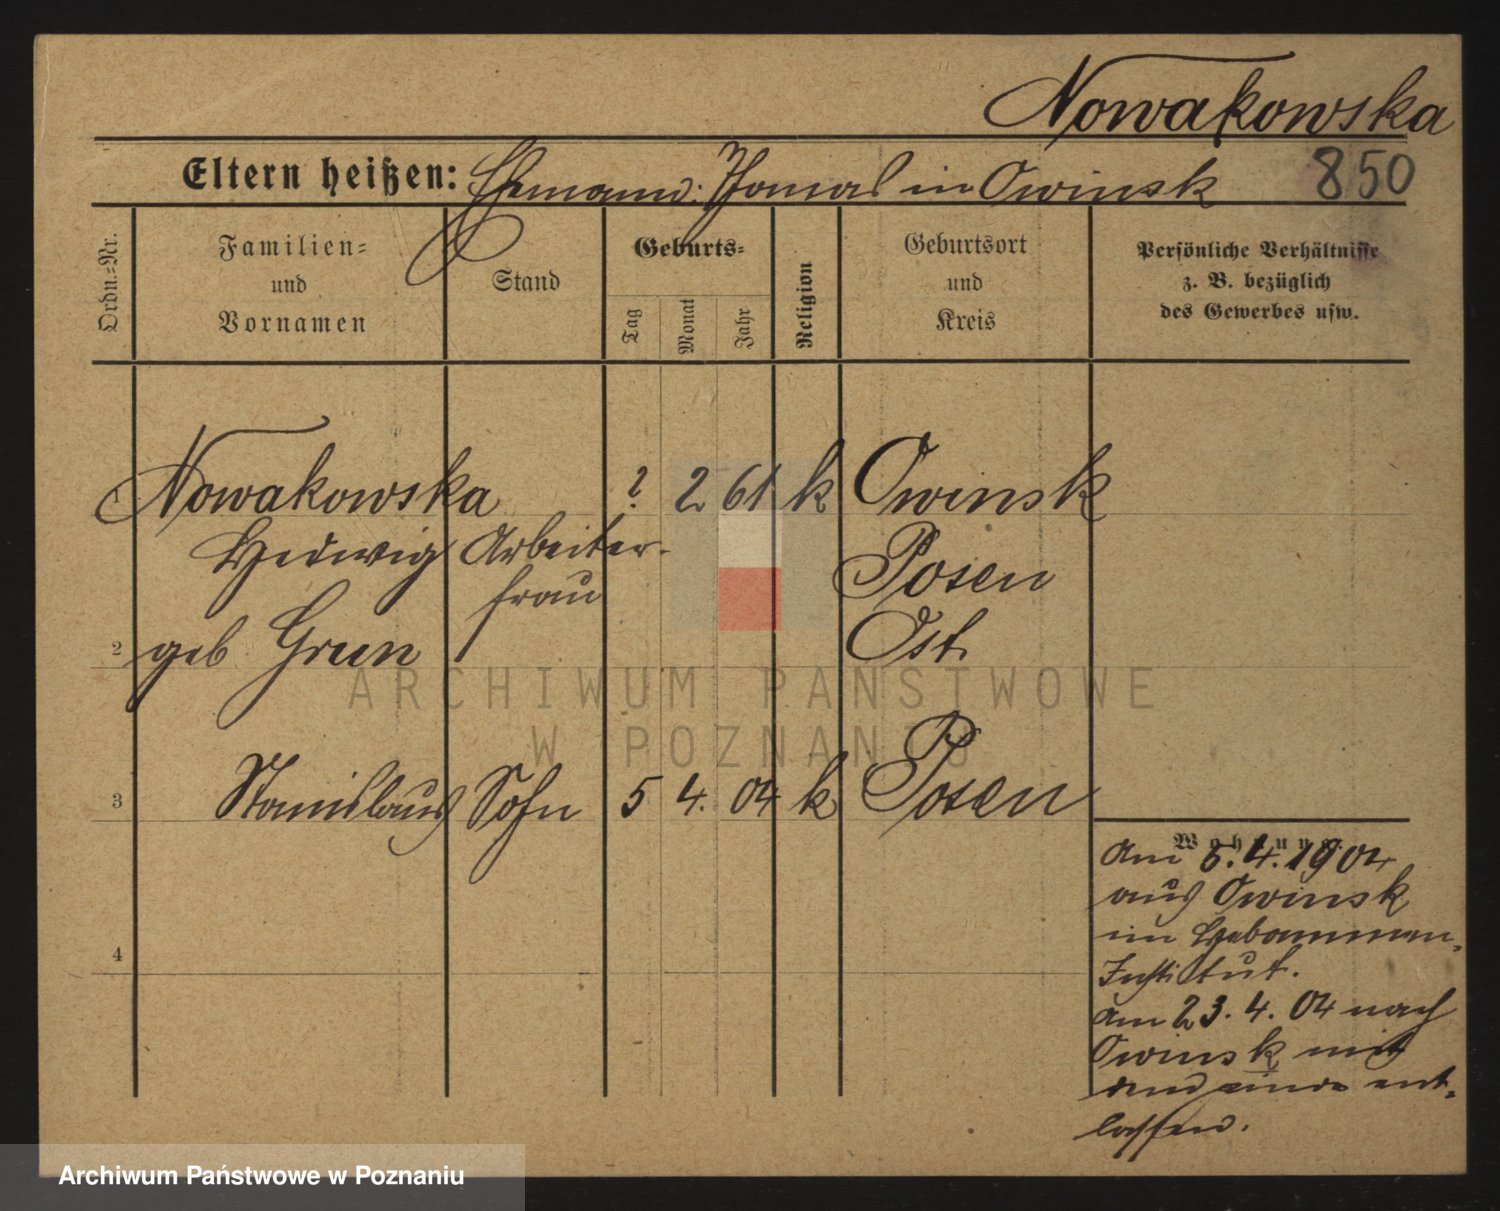 Nowakowska
Eltern heißen: Ehemann: Thomas in Owinsk 850
Ordn.-Nr.
Familien-
und
Vornamen
Stand
Geburts-
Tag
Monat
Jahr
Religion
Geburtsort
und
Kreis
Persönliche Verhältnisse
z. B. bezüglich
des Gewerbes usw.
1 Nowakowska ? 2 61 k Owinsk
Hedwig Arbeiter- Posen
frau
2 geb Grun Ost
ARCHIWUM PAŃSTWOWE
W POZNANIU
3 Stanislaus Sohn 5 4. 04 k Posen
Wohnung
am 5.4.1904
aus Owinsk
im Hebammen-
Institut.
4
am 23.4.04 nach
Owinsk mit
dem Kinde ent-
lassen.
Archiwum Państwowe w Poznaniu